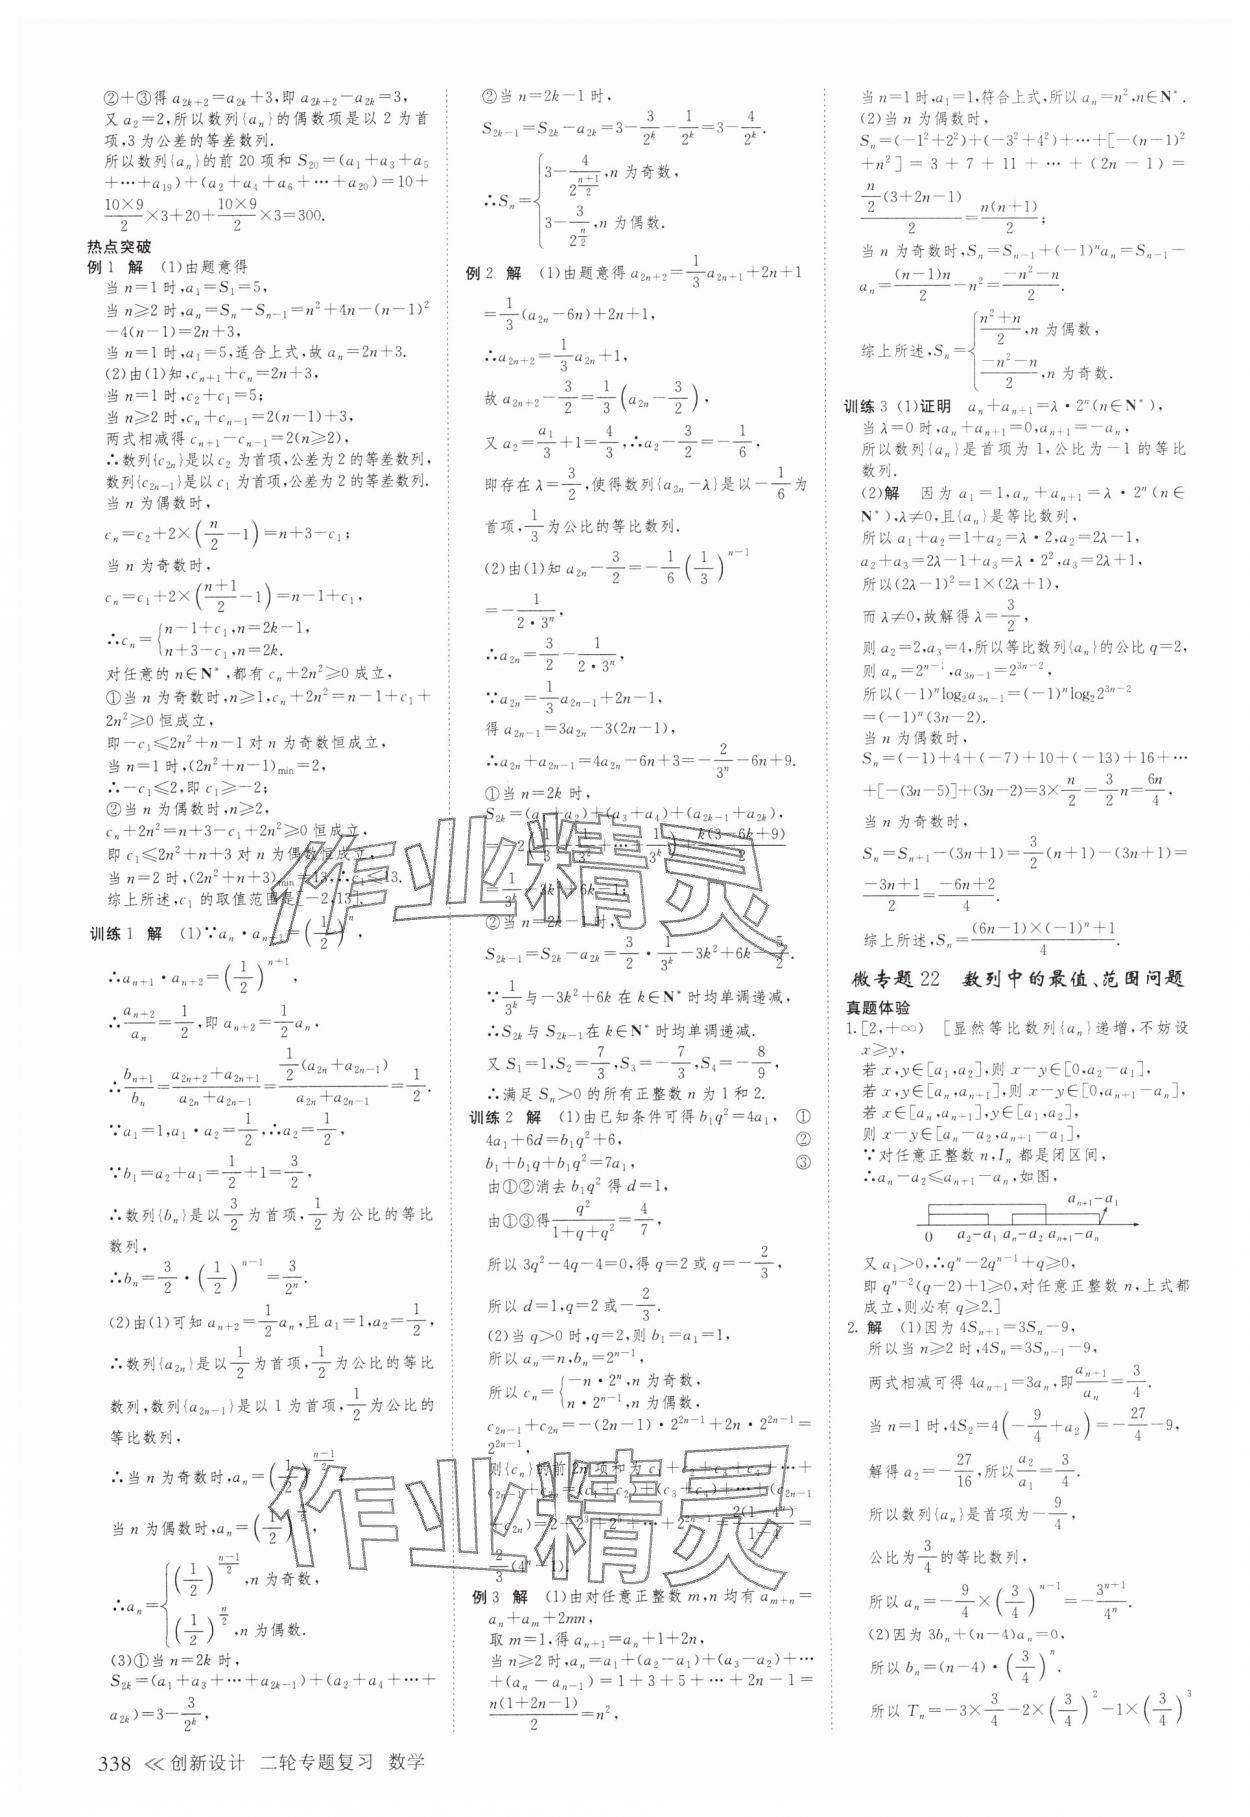 ②+③得 a₂ₖ₊₂=a₂ₖ+3,即 a₂ₖ₊₂-a₂ₖ=3,
又 a₂=2,所以数列{aₙ}的偶数项是以 2 为首
项,3 为公差的等差数列.
所以数列{aₙ}的前 20 项和 S₂₀=(a₁+a₃+a₅
+…+a₁₉)+(a₂+a₄+a₆+…+a₂₀)=10+
10×9/2×3+20+10×9/2×3=300.
热点突破
例 1 解 (1)由题意得
当 n=1 时,a₁=S₁=5,
当 n≥2 时,aₙ=Sₙ-Sₙ₋₁=n²+4n-(n-1)²
-4(n-1)=2n+3,
当 n=1 时,a₁=5,适合上式,故 aₙ=2n+3.
(2)由(1)知,cₙ₊₁+cₙ=2n+3,
当 n=1 时,c₂+c₁=5;
当 n≥2 时,cₙ+cₙ₋₁=2(n-1)+3,
两式相减得 cₙ₊₁-cₙ₋₁=2(n≥2),
∴数列{c₂ₙ}是以 c₂ 为首项,公差为 2 的等差数列,
数列{c₂ₙ₋₁}是以 c₁ 为首项,公差为 2 的等差数列.
当 n 为偶数时,
cₙ=c₂+2×(n/2-1)=n+3-c₁;
当 n 为奇数时,
cₙ=c₁+2×((n+1)/2-1)=n-1+c₁,
∴cₙ={n-1+c₁,n=2k-1,
n+3-c₁,n=2k.
对任意的 n∈N*,都有 cₙ+2n²≥0 成立,
①当 n 为奇数时,n≥1,cₙ+2n²=n-1+c₁+
2n²≥0 恒成立,
即-c₁≤2n²+n-1 对 n 为奇数恒成立,
当 n=1 时,(2n²+n-1)min=2,
∴-c₁≤2,即 c₁≥-2;
②当 n 为偶数时,n≥2,
cₙ+2n²=n+3-c₁+2n²≥0 恒成立,
即 c₁≤2n²+n+3 对 n 为偶数恒成立,
当 n=2 时,(2n²+n+3)min=13,∴c₁≤13.
综上所述,c₁ 的取值范围是[-2,13].
训练 1 解 (1)∵aₙ·aₙ₊₁=(1/2)ⁿ,
∴aₙ₊₁·aₙ₊₂=(1/2)ⁿ⁺¹,
∴aₙ₊₂/aₙ=1/2,即 aₙ₊₂=1/2aₙ,
∴bₙ₊₁/bₙ=(a₂ₙ₊₂+a₂ₙ₊₁)/(a₂ₙ+a₂ₙ₋₁)=1/2(a₂ₙ+a₂ₙ₋₁)/(a₂ₙ+a₂ₙ₋₁)=1/2.
∵a₁=1,a₁·a₂=1/2,∴a₂=1/2,
∵b₁=a₂+a₁=1/2+1=3/2.
∴数列{bₙ}是以3/2为首项,1/2为公比的等比
数列,
∴bₙ=3/2·(1/2)ⁿ⁻¹=3/2ⁿ.
(2)由(1)可知 aₙ₊₂=1/2aₙ,且 a₁=1,a₂=1/2,
∴数列{a₂ₙ}是以1/2为首项,1/2为公比的等比
数列,数列{a₂ₙ₋₁}是以 1 为首项,1/2为公比的
等比数列,
∴当 n 为奇数时,aₙ=(1/2)^((n-1)/2);
当 n 为偶数时,aₙ=(1/2)^(n/2),
∴aₙ={(1/2)^((n-1)/2),n 为奇数,
(1/2)^(n/2),n 为偶数.
(3)①当 n=2k 时,
S₂ₖ=(a₁+a₃+…+a₂ₖ₋₁)+(a₂+a₄+…+
a₂ₖ)=3-3/2ᵏ,
②当 n=2k-1 时,
S₂ₖ₋₁=S₂ₖ-a₂ₖ=3-3/2ᵏ-1/2ᵏ=3-4/2ᵏ.
∴Sₙ={3-4/2^((n+1)/2),n 为奇数,
3-3/2^(n/2),n 为偶数.
例 2 解 (1)由题意得 a₂ₙ₊₂=1/3a₂ₙ₊₁+2n+1
=1/3(a₂ₙ-6n)+2n+1,
∴a₂ₙ₊₂=1/3a₂ₙ+1,
故 a₂ₙ₊₂-3/2=1/3(a₂ₙ-3/2),
又 a₂=a₁/3+1=4/3,∴a₂-3/2=-1/6,
即存在 λ=3/2,使得数列{a₂ₙ-λ}是以-1/6为
首项,1/3为公比的等比数列.
(2)由(1)知 a₂ₙ-3/2=-1/6(1/3)ⁿ⁻¹
=-1/(2·3ⁿ),
∴a₂ₙ=3/2-1/(2·3ⁿ).
∵a₂ₙ=1/3a₂ₙ₋₁+2n-1,
得 a₂ₙ₋₁=3a₂ₙ-3(2n-1),
∴a₂ₙ+a₂ₙ₋₁=4a₂ₙ-6n+3=-2/3ⁿ-6n+9.
①当 n=2k 时,
S₂ₖ=(a₁+a₂)+(a₃+a₄)+(a₂ₖ₋₁+a₂ₖ),
=-2(1/3+1/3²+…+1/3ᵏ)+k(3-6k+9)/2
=1/3ᵏ-3k²+6k-1;
②当 n=2k-1 时,
S₂ₖ₋₁=S₂ₖ-a₂ₖ=3/2·1/3ᵏ-3k²+6k-5/2
∵1/3ᵏ与-3k²+6k 在 k∈N* 时均单调递减,
∴S₂ₖ与 S₂ₖ₋₁在 k∈N* 时均单调递减.
又 S₁=1,S₂=7/3,S₃=-7/3,S₄=-8/9,
∴满足 Sₙ>0 的所有正整数 n 为 1 和 2.
训练 2 解 (1)由已知条件可得 b₁q²=4a₁, ①
4a₁+6d=b₁q²+6, ②
b₁+b₁q+b₁q²=7a₁, ③
由①②消去 b₁q² 得 d=1,
由①③得q²/(1+q+q²)=4/7,
所以 3q²-4q-4=0,得 q=2 或 q=-2/3,
所以 d=1,q=2 或-2/3.
(2)当 q>0 时,q=2,则 b₁=a₁=1.
所以 aₙ=n,bₙ=2ⁿ⁻¹,
所以 cₙ={-n·2ⁿ,n 为奇数,
n·2ⁿ⁻¹,n 为偶数,
c₂ₙ₋₁+c₂ₙ=-(2n-1)·2²ⁿ⁻¹+2n·2²ⁿ⁻¹=
2²ⁿ⁻¹,
则{cₙ}的前 2n 项和为 c₁+c₂+c₃+c₄+…+
c₂ₙ₋₁+c₂ₙ=(c₁+c₂)+(c₃+c₄)+…+(c₂ₙ₋₁
+c₂ₙ)=2+2³+2⁵+…+2²ⁿ⁻¹=2(1-4ⁿ)/(1-4)=
2/3(4ⁿ-1).
例 3 解 (1)由对任意正整数 m,n 均有 aₘ₊ₙ=
aₙ+aₘ+2mn,
取 m=1,得 aₙ₊₁=aₙ+1+2n,
当 n≥2 时,aₙ=a₁+(a₂-a₁)+(a₃-a₂)+…
+(aₙ-aₙ₋₁)=1+3+5+…+2n-1=
n(1+2n-1)/2=n²,
当 n=1 时,a₁=1,符合上式,所以 aₙ=n²,n∈N*.
(2)当 n 为偶数时,
Sₙ=(-1²+2²)+(-3²+4²)+…+[-(n-1)²
+n²]=3+7+11+…+(2n-1)=
n/2(3+2n-1)/2=n(n+1)/2;
当 n 为奇数时,Sₙ=Sₙ₋₁+(-1)ⁿaₙ=Sₙ₋₁-
aₙ=(n-1)n/2-n²=(-n²-n)/2.
综上所述,Sₙ={(n²+n)/2,n 为偶数,
(-n²-n)/2,n 为奇数.
训练 3 (1)证明 aₙ+aₙ₊₁=λ·2ⁿ(n∈N*),
当 λ=0 时,aₙ+aₙ₊₁=0,aₙ₊₁=-aₙ,
所以数列{aₙ}是首项为 1,公比为-1 的等比
数列.
(2)解 因为 a₁=1,aₙ+aₙ₊₁=λ·2ⁿ(n∈
N*),λ≠0,且{aₙ}是等比数列,
所以 a₁+a₂=1+a₂=λ·2,a₂=2λ-1,
a₂+a₃=2λ-1+a₃=λ·2²,a₃=2λ+1,
所以(2λ-1)²=1×(2λ+1),
而 λ≠0,故解得 λ=3/2,
则 a₂=2,a₃=4,所以等比数列{aₙ}的公比 q=2,
则 aₙ=2ⁿ⁻¹,a₃ₙ₋₁=2³ⁿ⁻²,
所以(-1)ⁿlog₂a₃ₙ₋₁=(-1)ⁿlog₂2³ⁿ⁻²
=(-1)ⁿ(3n-2).
当 n 为偶数时,
Sₙ=(-1)+4+(-7)+10+(-13)+16+…
+[-(3n-5)]+(3n-2)=3×n/2=3/2n=6n/4,
当 n 为奇数时,
Sₙ=Sₙ₊₁-(3n+1)=3/2(n+1)-(3n+1)=
(-3n+1)/2=(-6n+2)/4.
综上所述,Sₙ=((6n-1)×(-1)ⁿ+1)/4.
微专题 22 数列中的最值、范围问题
真题体验
1.[2,+∞) [显然等比数列{aₙ}递增,不妨设
x≥y,
若 x,y∈[a₁,a₂],则 x-y∈[0,a₂-a₁],
若 x,y∈[aₙ,aₙ₊₁],则 x-y∈[0,aₙ₊₁-aₙ],
若 x∈[aₙ,aₙ₊₁],y∈[a₁,a₂],
则 x-y∈[aₙ-a₂,aₙ₊₁-a₁],
∵对任意正整数 n,Iₙ 都是闭区间,
∴aₙ-a₂≤aₙ₊₁-aₙ,如图,
aₙ₊₁-a₁
0 a₂-a₁ aₙ-a₂ aₙ₊₁-aₙ
又 a₁>0,∴qⁿ-2qⁿ⁻¹+q≥0,
即 qⁿ⁻²(q-2)+1≥0,对任意正整数 n,上式都
成立,则必有 q≥2.]
2. 解 (1)因为 4Sₙ₊₁=3Sₙ-9,
所以当 n≥2 时,4Sₙ=3Sₙ₋₁-9,
两式相减可得 4aₙ₊₁=3aₙ,即aₙ₊₁/aₙ=3/4.
当 n=1 时,4S₂=4(-9/4+a₂)=-27/4-9,
解得 a₂=-27/16,所以a₂/a₁=3/4.
所以数列{aₙ}是首项为-9/4,
公比为3/4的等比数列,
所以 aₙ=-9/4×(3/4)ⁿ⁻¹=-3ⁿ⁺¹/4ⁿ.
(2)因为 3bₙ+(n-4)aₙ=0,
所以 bₙ=(n-4)·(3/4)ⁿ.
所以 Tₙ=-3×3/4-2×(3/4)²-1×(3/4)³
338 ≪ 创新设计 二轮专题复习 数学
作业精灵
作业精灵